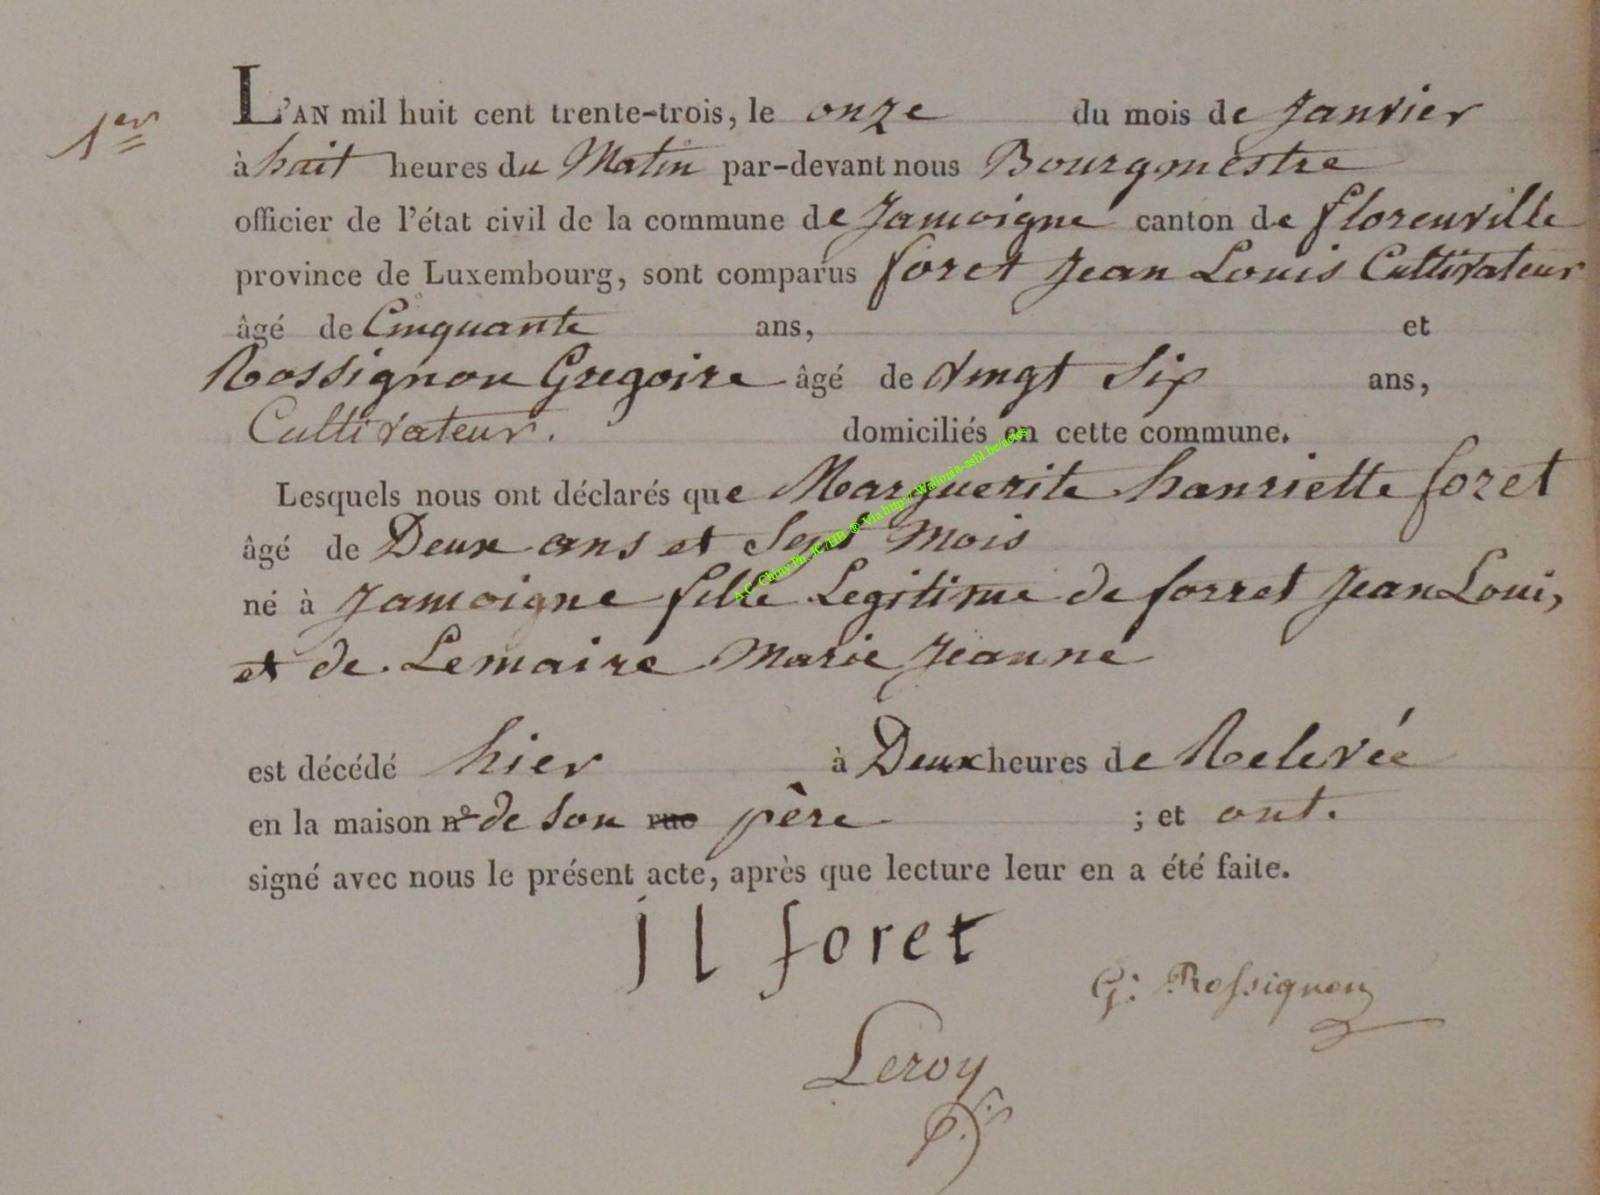 1er
L'AN mil huit cent trente-trois, le onze du mois de Janvier
à huit heures du Matin par-devant nous Bourgmestre
officier de l'état civil de la commune de Jamoigne canton de florenville
province de Luxembourg, sont comparus foret Jean Louis Cultivateur
âgé de Cinquante ans, et
Rossignon Gregoire âgé de Vingt Six ans,
Cultivateur. domiciliés en cette commune.
Lesquels nous ont déclarés que Marguerite hanriette foret
âgé de Deux ans et Sept Mois
né à Jamoigne fille Legitime de forret Jean Louis
et de Lemaire Marie Jeanne
est décédé hier à Deux heures de Relevée
en la maison n° de son rue père ; et ont.
signé avec nous le présent acte, après que lecture leur en a été faite.
j l foret
G: Rossignon
Leroy